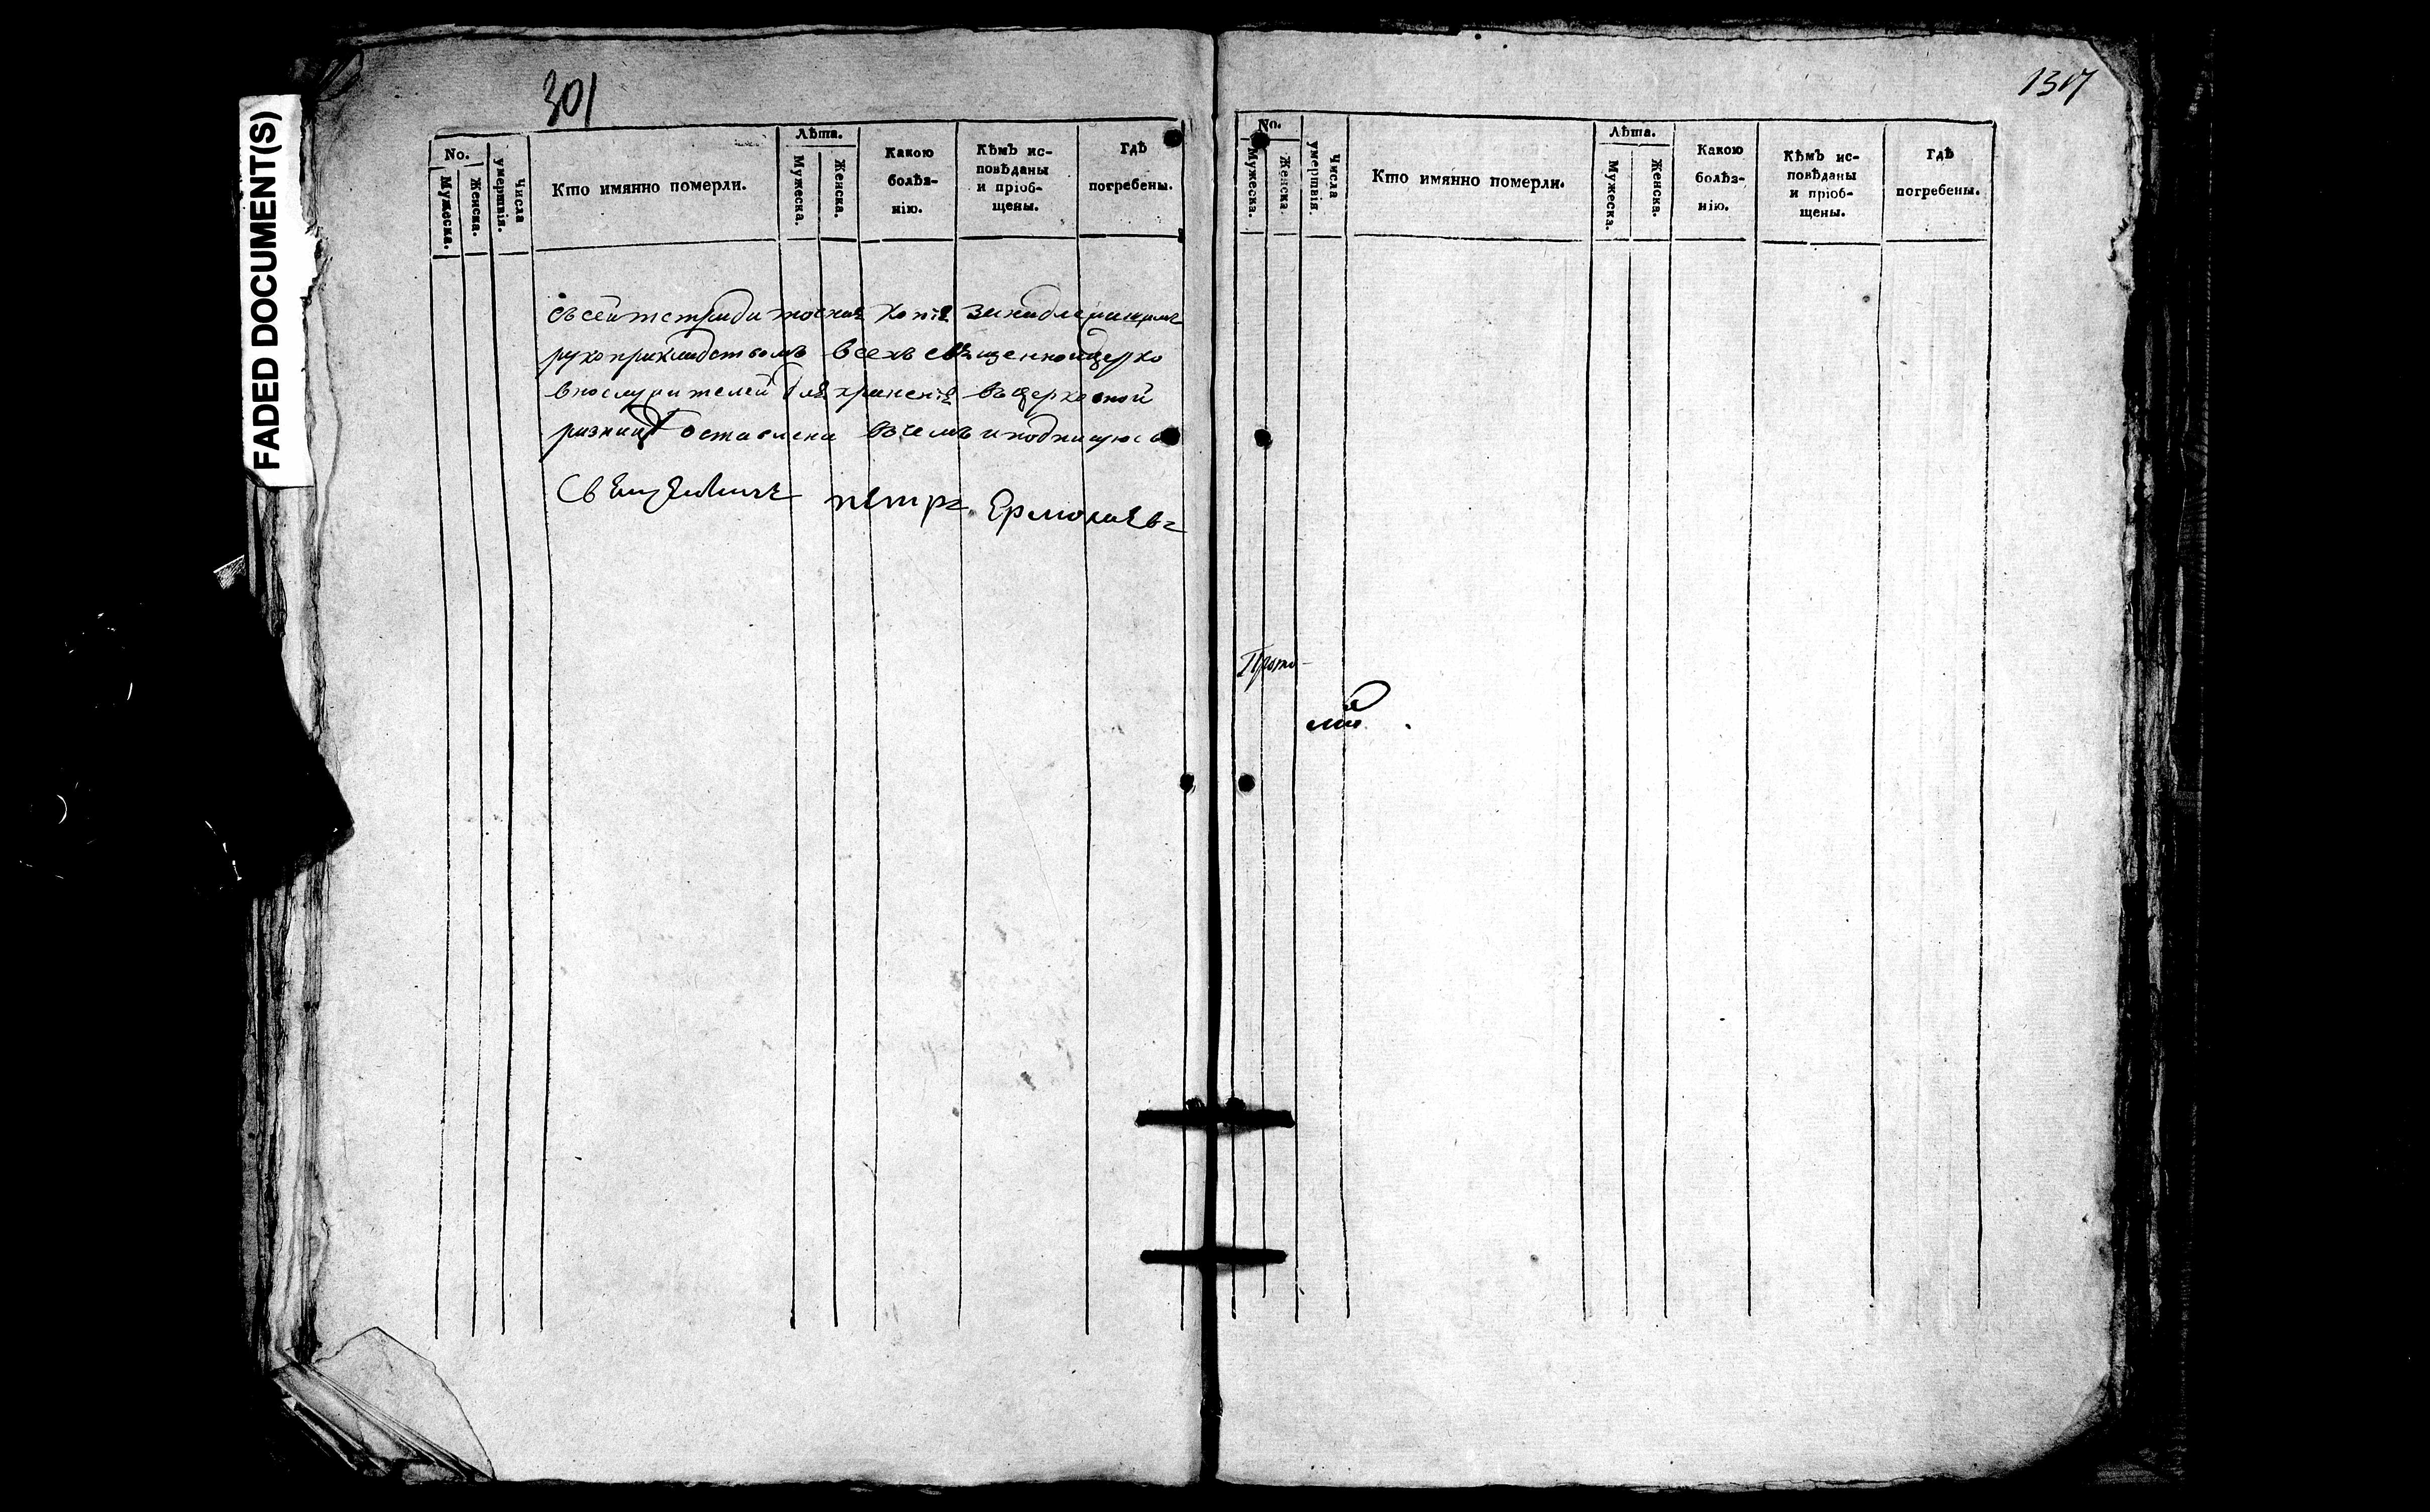 FADED DOCUMENT(S)
301
No.
Мужеска.
Женска.
Числа умертвія.
Кто имянно померли.
Лѣта.
Мужеска.
Женска.
Какою
болѣз-
нію.
Кѣмъ ис-
повѣданы
и пріоб-
щены.
Гдѣ
погребены.
съ сей тетради точная копія за надлежащимъ
рукоприкладствомъ всехъ священно и церко
внослужителей для храненія въ церковной
ризницѣ оставлена въ чемъ и подпишуюсь
Священникъ петръ Ермолаевъ
No.
Мужеска.
Женска.
Числа умертвія.
Кто имянно померли.
Лѣта.
Мужеска.
Женска.
Какою
болѣз-
нію.
Кѣмъ ис-
повѣданы
и пріоб-
щены.
Гдѣ
погребены.
Прото-